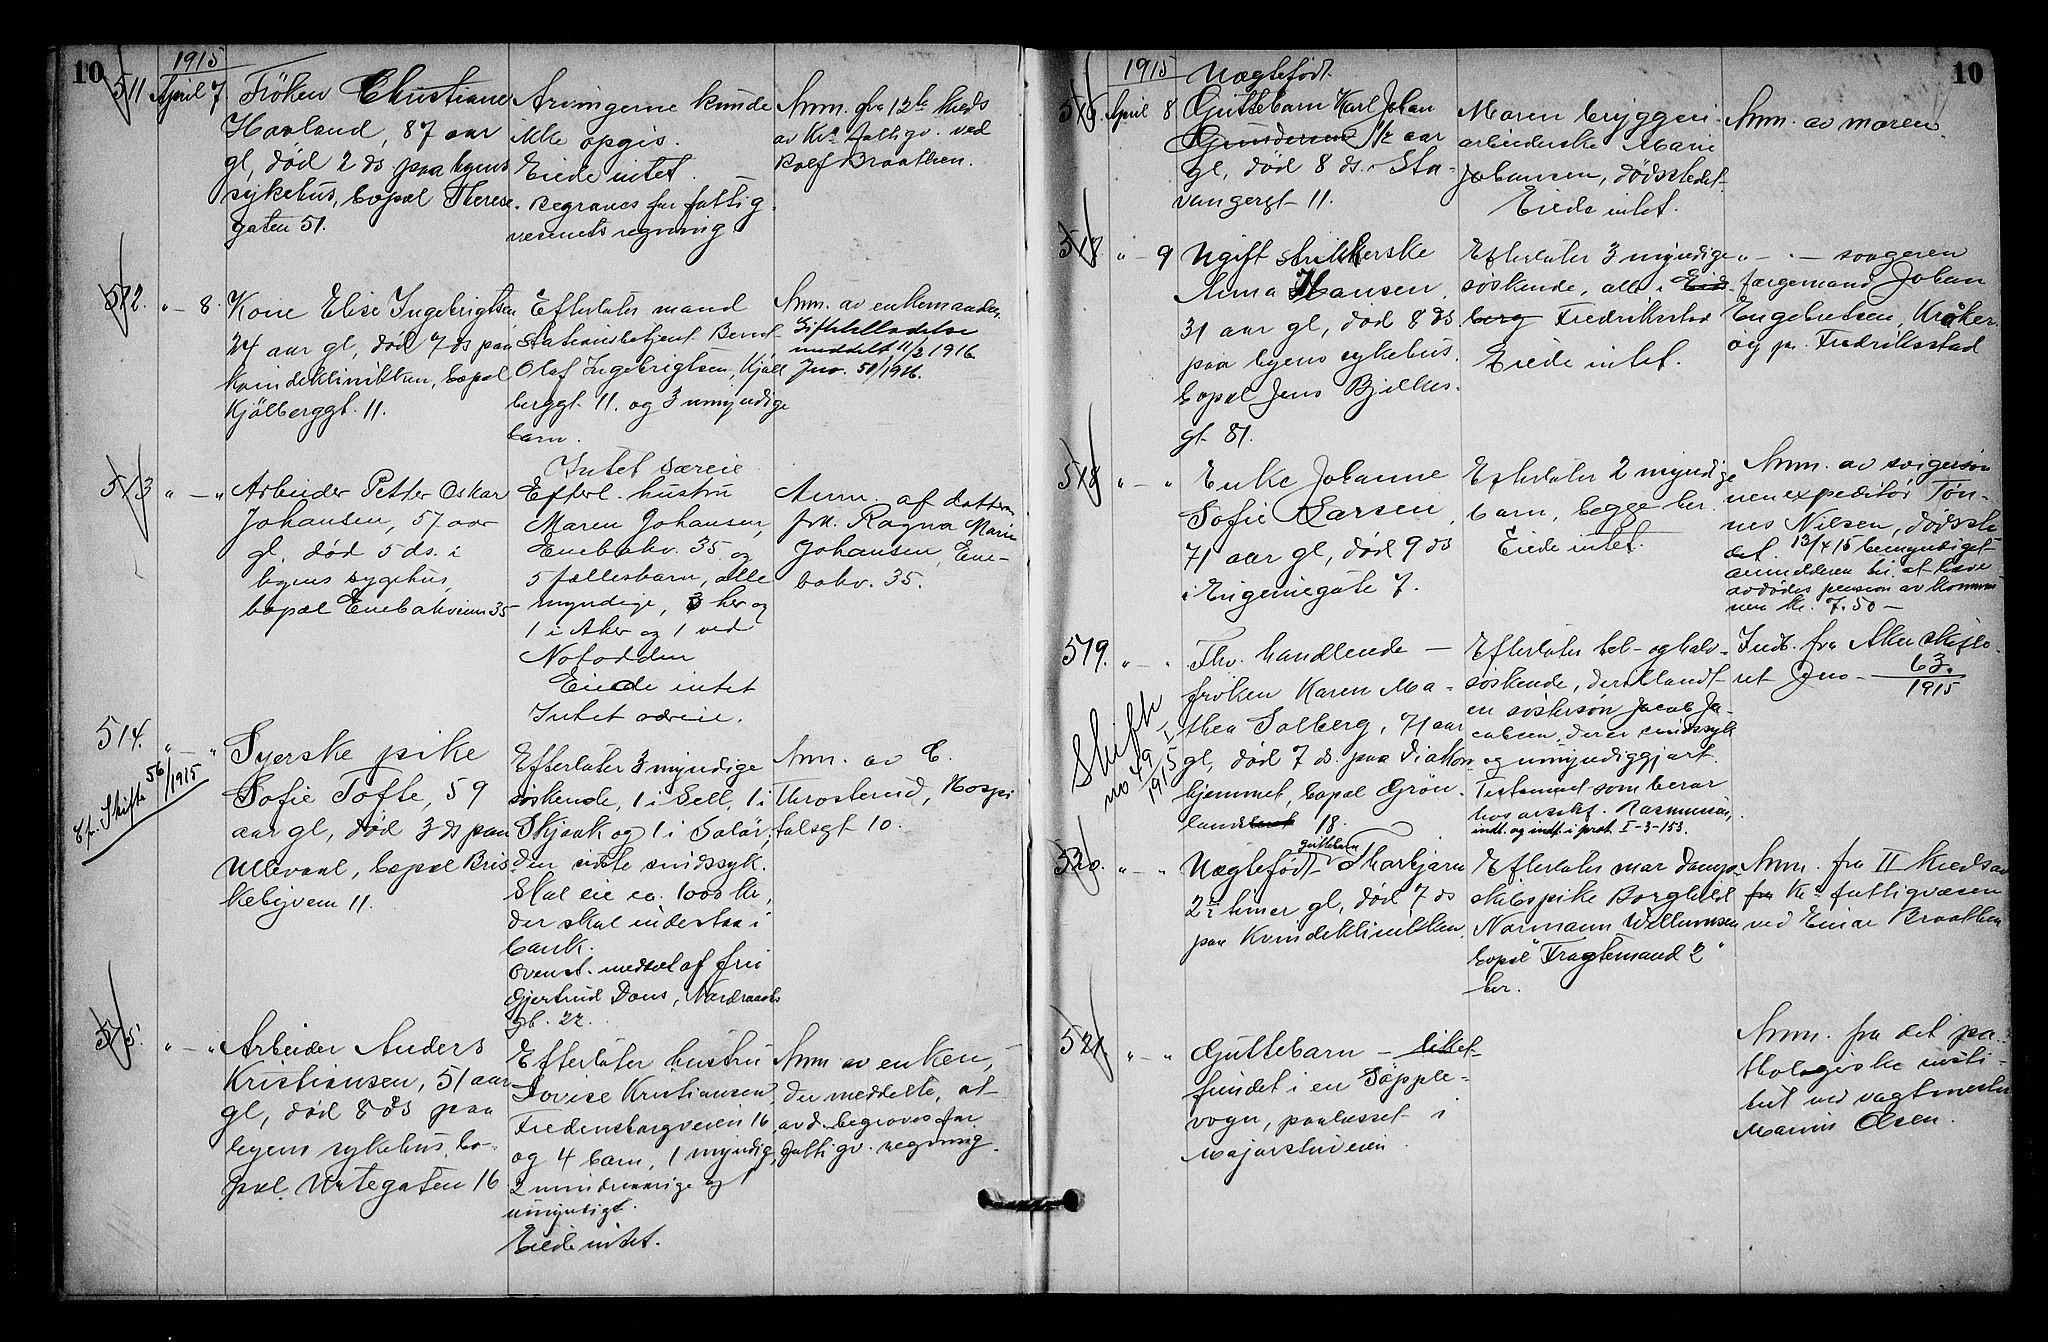 10
1915
511 April 7. Fröken Christiane
Havland, 87 aar
gl, död 2 ds. paa byens
sykehus, bopæl Therese
gaten 51.
Arvingerne kunde
ikke opgis.
Eiede intet.
Begraves for fattig
væsenets regning
Anm. fra 12te kreds
av Kra fattigv. ved
Rolf Braathen.
512. " — 8. Kone Elise Ingebrigtsen
24 aar gl, död 7 ds paa
kvindeklinikken, bopæl
Kjölberggt. 11.
Efterlater mand
stationsbetjent Bernt
Olaf Ingebrigtsen, Kjöl
berggt. 11. og 3 umyndige
barn.
Intet særeie
Anm. av enkemanden.
Skiftetilladelse
meddelt 11/2 1916
Jno. 50/1916.
513 " — " Arbeider Petter Oskar
Johansen, 57 aar
gl. död 5 ds. i
byens sygehus,
bopæl Enebakveien 35
Efterl. hustru
Maren Johansen,
Enebakv. 35 og
5 fællesbarn, alle
myndige, 3 her og
1 i Aker og 1 ved
Notodden
Eiede intet
Intet særeie.
Anm. af datteren
frk. Ragna Marie
Johansen, Ene-
bakv. 35.
514. " — " Syerske pike
Sofie Tofte, 59
aar gl, död 3 ds paa
Ullevaal, bopæl Bris
kebyveien 11.
Cfr. Skifte 56/1915
Efterlater 3 myndige
söskende, 1 i Sell, 1 i
Skjaak og 1 i Solör,
den sidste sindssyk.
Skal eie ca. 1000 kr,
der skal indestaa i
bank.
Ovenst. meddelt af fru
Gjertrud Dons, Nordraaks
gt. 22.
Anm. av C.
Hospi
talsgt 10.
515. " — " Arbeider Anders
Kristiansen, 51 aar
gl, död 8 ds paa
byens sykehus, bo-
pæl. Urtegaten 16
Efterlater hustru
Lovise Kristiansen,
Fredensborgveien 16
og 4 barn, 1 myndig,
2 mindreaarige og 1
umyndigt.
Eiede intet.
Anm av enken,
der meddelte, at
avd. begraves for
fattigv. regning.
10
1915
516. April 8 Uægtefödt.
Guttebarn Karl Johan
Gundersen 1/2 aar
gl, död 8 ds. Sta-
vangergt 11.
Moren bryggeri
arbeiderske Marie
Johansen, dödsstedet
Eiede intet.
Anm. av moren.
517 " — 9 Ugift strikkerske
Anna Hansen,
31 aar gl, död 8 ds
paa byens sykehus.
bopæl Jens Bjelkes.
gt 81.
Efterlater 3 myndige
söskende, alle i Eids
berg Fredriksstad
Eiede intet.
" — " — svogeren
færgemand Johan
Engebretsen, Kråker.
og pr. Fredriksstad
518 " — " Enke Johanne
Sofie Larsen,
71 aar gl, död 9 ds
i Eugeniegate 7.
Efterlater 2 myndige
barn, begge her.
Eiede intet.
Anm. av svigersön
nen expeditör Tön-
nes Nilsen, dödsste
det. 13/4 15 bemyndiget
anmelderen til at hæve
avdödes pension av kommu
nen kr. 7.50 —
519. " — " Fhv. handlende —
fröken Karen Ma-
thea Solberg, 71 aar
gl, död 7 ds. paa Diakon
hjemmet, bopæl Grön-
landsleret 18.
Skifte
no 49 I
1915
Efterlater hel- og halv-
söskende, deriblandt
en söstersön Jacob Ja-
cobsen, der er sindssyk
og umyndiggjort.
Testament som beror
hos overskf. Rasmussen,
indt. og indf. i prot. I-3-153.
Indb. fra Aker skifte-
ret Jno — 63/1915
520. " — " Uægtefödt guttebarn Thorbjörn
2 1/2 timer gl, död 7 ds
paa Kvindeklinikken.
Efterlater mor damp-
skibspike Borghild
Normann Willumsen
bopæl "Fragtemand 2"
her.
Anm. fra II kreds av
fra Kra fattigvæsen
ved Einar Braathen
521. " — " Guttebarn — liket
fundet i en söpple-
vogn, paalæsset i
Majorstuveien
Anm. fra det pa-
thologiske insti-
tut ved vagtmester
Marius Olsen.